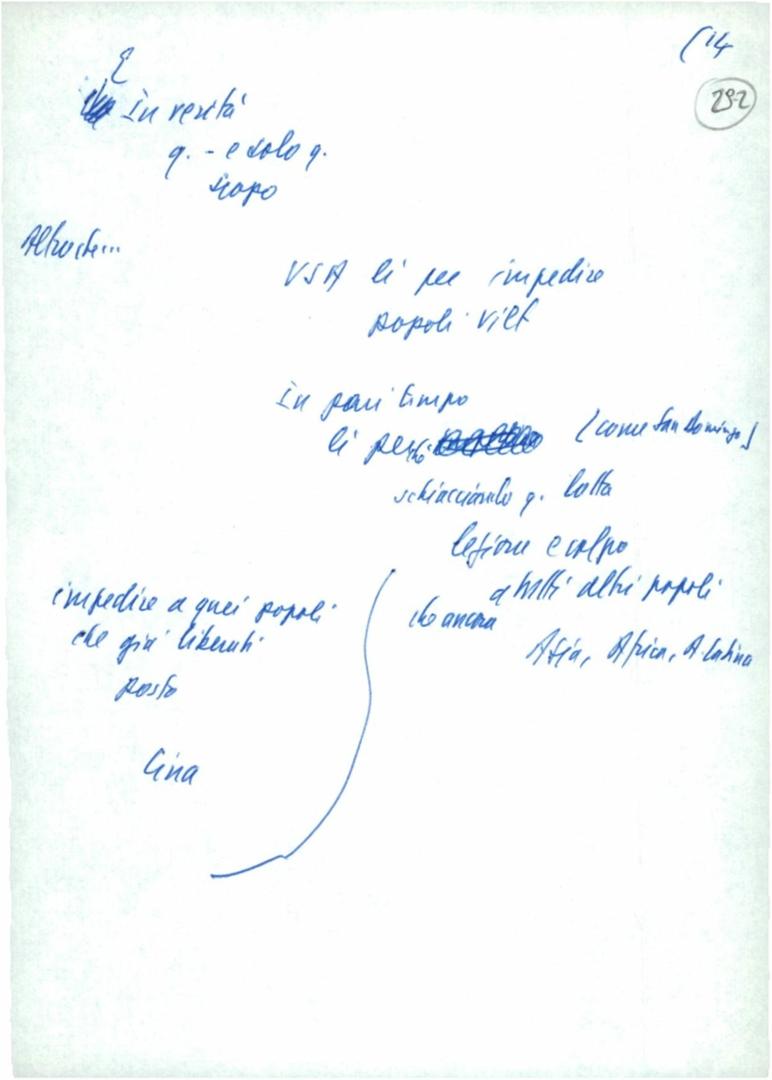 (14
292
E
In verità
q. - e solo q.
scopo
Altro che...
USA lì per impedire
popoli Viet
In pari tempo
lì perché (come San Domingo)
schiacciando q. lotta
lezione e colpo
a tutti altri popoli
che ancora
Asia, Africa, A. latina
impedire a quei popoli
che già liberati
posto
Cina